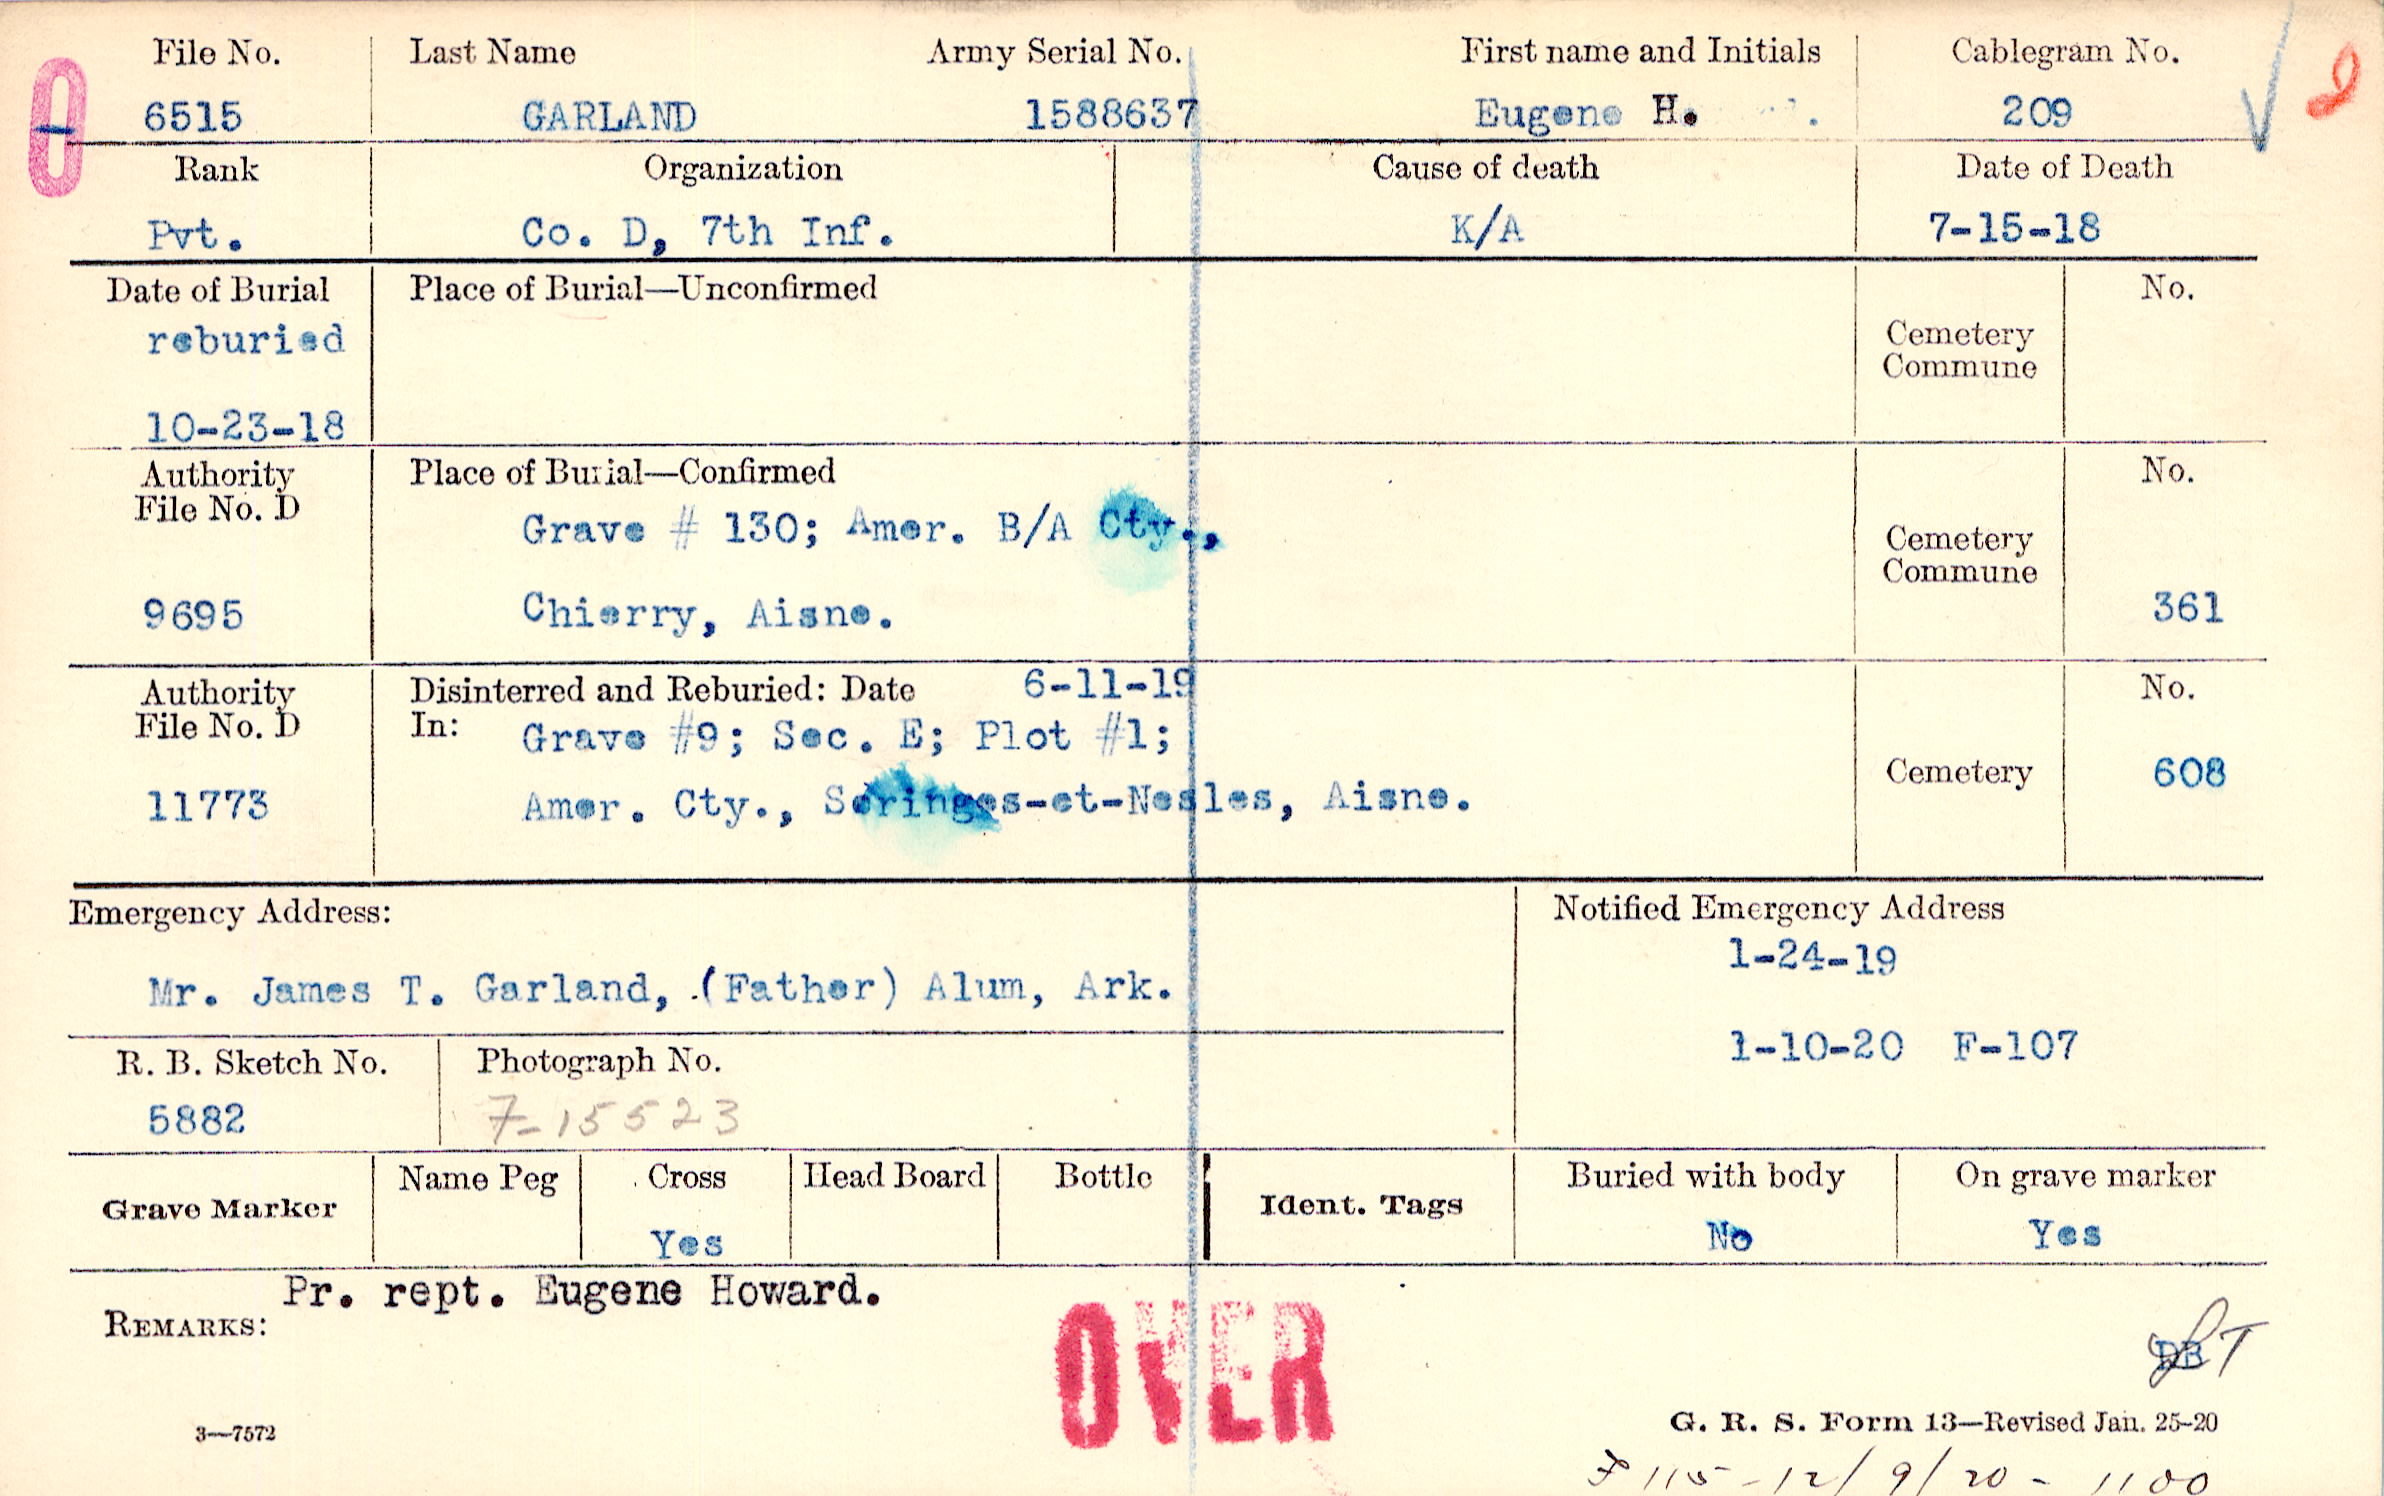 File No. Last Name Army Serial No. First name and Initials Cablegram No.
6515 GARLAND 1588637 Eugene H. 209
Rank Organization Cause of death Date of Death
Pvt. Co. D, 7th Inf. K/A 7-15-18
Date of Burial Place of Burial—Unconfirmed No.
reburied Cemetery
Commune
10-23-18
Authority Place of Burial—Confirmed No.
File No. D Grave # 130; Amer. B/A Cty., Cemetery
Commune
9695 Chierry, Aisne. 361
Authority Disinterred and Reburied: Date 6-11-19 No.
File No. D In: Grave #9; Sec. E; Plot #1;
Cemetery 608
11773 Amer. Cty., Seringes-et-Nesles, Aisne.
Emergency Address: Notified Emergency Address
1-24-19
Mr. James T. Garland, (Father) Alum, Ark.
1-10-20 F-107
R. B. Sketch No. Photograph No.
5882 7-15523
Grave Marker Name Peg Cross Head Board Bottle Ident. Tags Buried with body On grave marker
Yes No Yes
Pr. rept. Eugene Howard.
REMARKS:
OVER
3—7572 G. R. S. Form 13—Revised Jan. 25-20
115-12/9/20-1100